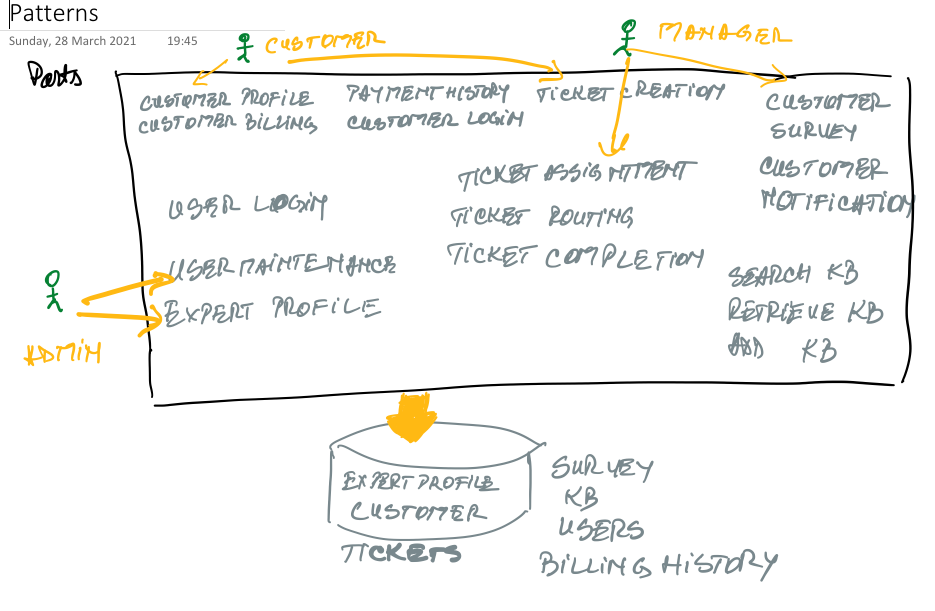 Patterns
Sunday, 28 March 2021 19:45
CUSTOMER
MANAGER
Parts
CUSTOMER PROFILE
CUSTOMER BILLING
PAYMENT HISTORY
CUSTOMER LOGIN
TICKET CREATION
CUSTOMER
SURVEY
CUSTOMER
NOTIFICATION
TICKET ASSIGNMENT
TICKET ROUTING
TICKET COMPLETION
USER LOGIN
USER MAINTENANCE
EXPERT PROFILE
ADMIN
SEARCH KB
RETRIEVE KB
ADD KB
EXPERT PROFILE
CUSTOMER
TICKETS
SURVEY
KB
USERS
BILLING HISTORY